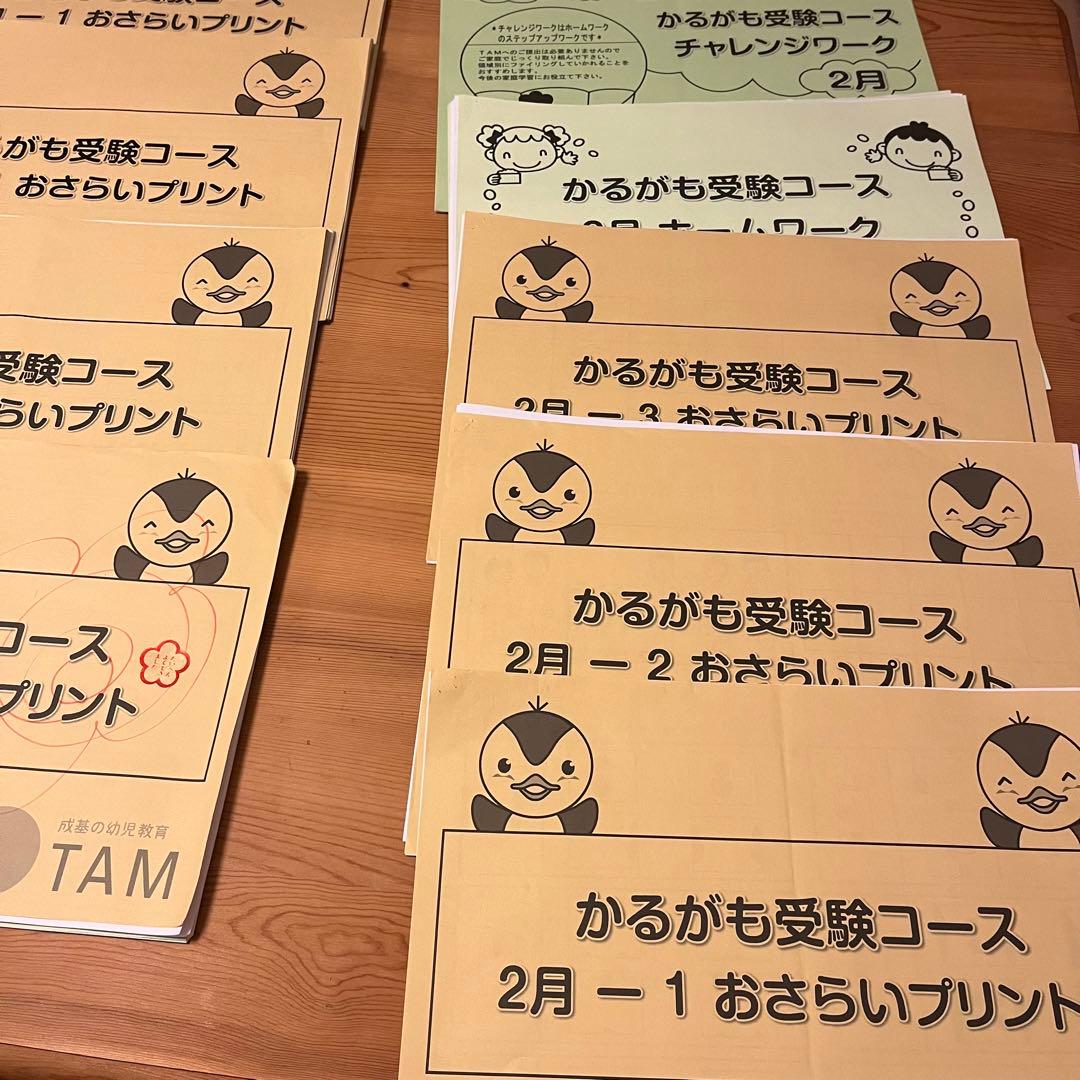 ー 1 おさらいプリント
るがも受験コース
おさらいプリント
受験コース
らいプリント
コース
プリント
成基の幼児教育
TAM
*チャレンジワークはホームワーク
のステップアップワークです*
TAMへのご提出は必要ありませんので
ご家庭でじっくり取り組んで下さい。
領域別にファイリングしていかれることを
おすすめします。
今後の家庭学習にお役立て下さい。
かるがも受験コース
チャレンジワーク
2月
かるがも受験コース
2月 ホームワーク
かるがも受験コース
2月 ー 3 おさらいプリント
かるがも受験コース
2月 ー 2 おさらいプリント
かるがも受験コース
2月 ー 1 おさらいプリント